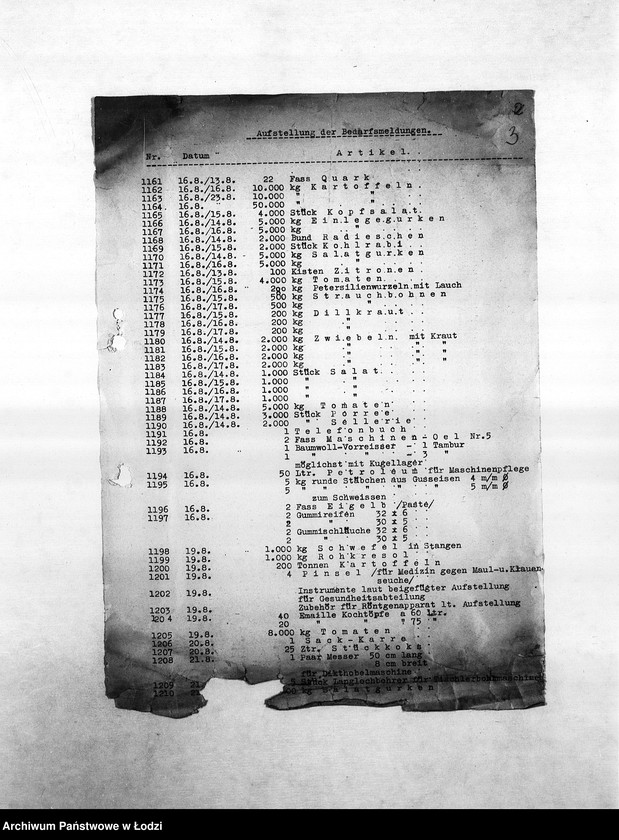 2
3
Aufstellung der Bedarfsmeldungen.
Nr. Datum Artikel.
1161 16.8./13.8. 22 Fass Quark
1162 16.8./16.8. 10.000 kg Kartoffeln
1163 16.8./23.8. 10.000 " "
1164 16.8. 50.000 " "
1165 16.8./15.8. 4.000 Stück Kopfsalat.
1166 16.8./14.8. 5.000 kg Einlegegurken
1167 16.8./16.8. 5.000 kg "
1168 16.8./14.8. 2.000 Bund Radieschen
1169 16.8./15.8. 2.000 Stück Kohlrabi
1170 16.8./14.8. 5.000 kg Salatgurken
1171 16.8./16.8. 5.000 kg "
1172 16.8./13.8. 100 Kisten Zitronen
1173 16.8./15.8. 4.000 kg Tomaten
1174 16.8./16.8. 200 kg Petersilienwurzeln mit Lauch
1175 16.8./15.8. 500 kg Strauchbohnen
1176 16.8./17.8. 500 kg "
1177 16.8./15.8. 200 kg Dillkraut
1178 16.8./16.8. 200 kg "
1179 16.8./17.8. 200 kg "
1180 16.8./14.8. 2.000 kg Zwiebeln mit Kraut
1181 16.8./15.8. 2.000 kg " " "
1182 16.8./16.8. 2.000 kg " " "
1183 16.8./17.8. 2.000 kg " " "
1184 16.8./14.8. 1.000 Stück Salat
1185 16.8./15.8. 1.000 " "
1186 16.8./16.8. 1.000 " "
1187 16.8./17.8. 1.000 " "
1188 16.8./14.8. 5.000 kg Tomaten
1189 16.8./14.8. 3.000 Stück Porree
1190 16.8./14.8. 2.000 " Sellerie
1191 16.8. 1 Telefonbuch
1192 16.8. 2 Fass Maschinen-Oel Nr.5
1193 16.8. 1 Baumwoll-Vorreisser - 1 Tambur
1 " " - 3 "
möglichst mit Kugellager
1194 16.8. 50 Ltr. Petroleum für Maschinenpflege
1195 16.8. 5 kg runde Stäbchen aus Gusseisen 4 m/m Ø
5 " " " " " 5 m/m Ø
zum Schweissen
1196 16.8. 2 Fass Eigelb /Paste/
1197 16.8. 2 Gummireifen 32 x 6
2 " 30 x 5
2 Gummischläuche 32 x 6
2 " 30 x 5
1198 19.8. 1.000 kg Schwefel in Stangen
1199 19.8. 1.000 kg Rohkresol
1200 19.8. 200 Tonnen Kartoffeln
1201 19.8. 4 Pinsel /für Medizin gegen Maul-u.Klauen
seuche/
1202 19.8. Instrumente laut beigefügter Aufstellung
für Gesundheitsabteilung
1203 19.8. Zubehör für Röntgenapparat lt. Aufstellung
1204 19.8. 40 Emaille Kochtöpfe a 60 Ltr.
20 " " 75 "
1205 19.8. 8.000 kg Tomaten
1206 20.8. 1 Sack-Karre
1207 20.8. 25 Ztr. Stückkoks
1208 21.8. 1 Paar Messer 50 cm lang
8 cm breit
für Dikthobelmaschine
1209 Stück Langlochbohrer für
1210 kg Salatgurken
Archiwum Państwowe w Łodzi